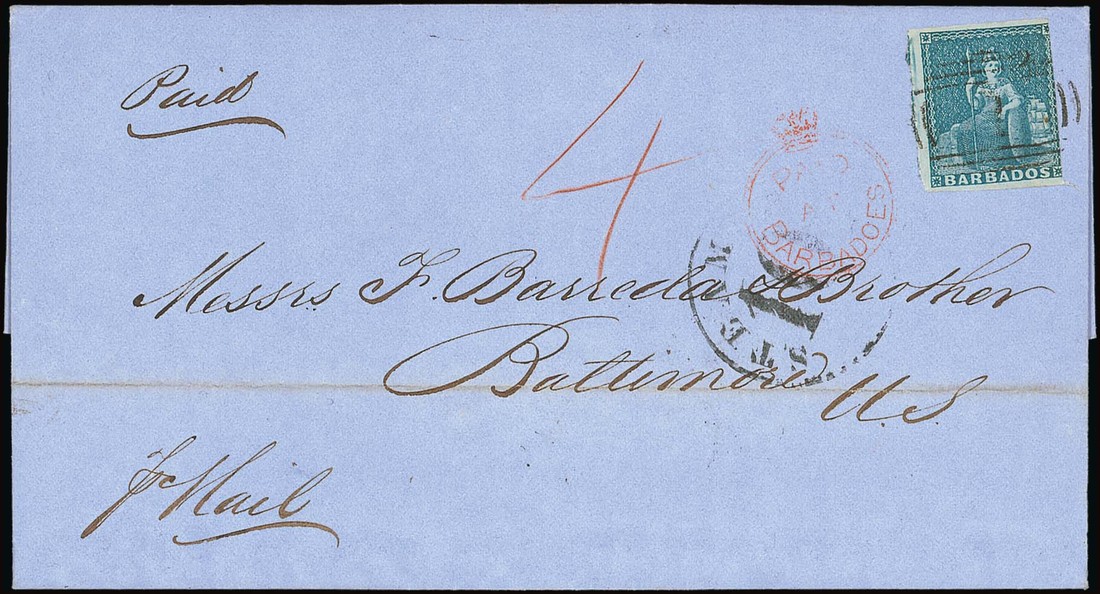 Paid
4
BARBADOS
PAID
BARBADOES
STEAM
Messrs F. Barreda & Brother
Baltimore
U.S
p Mail